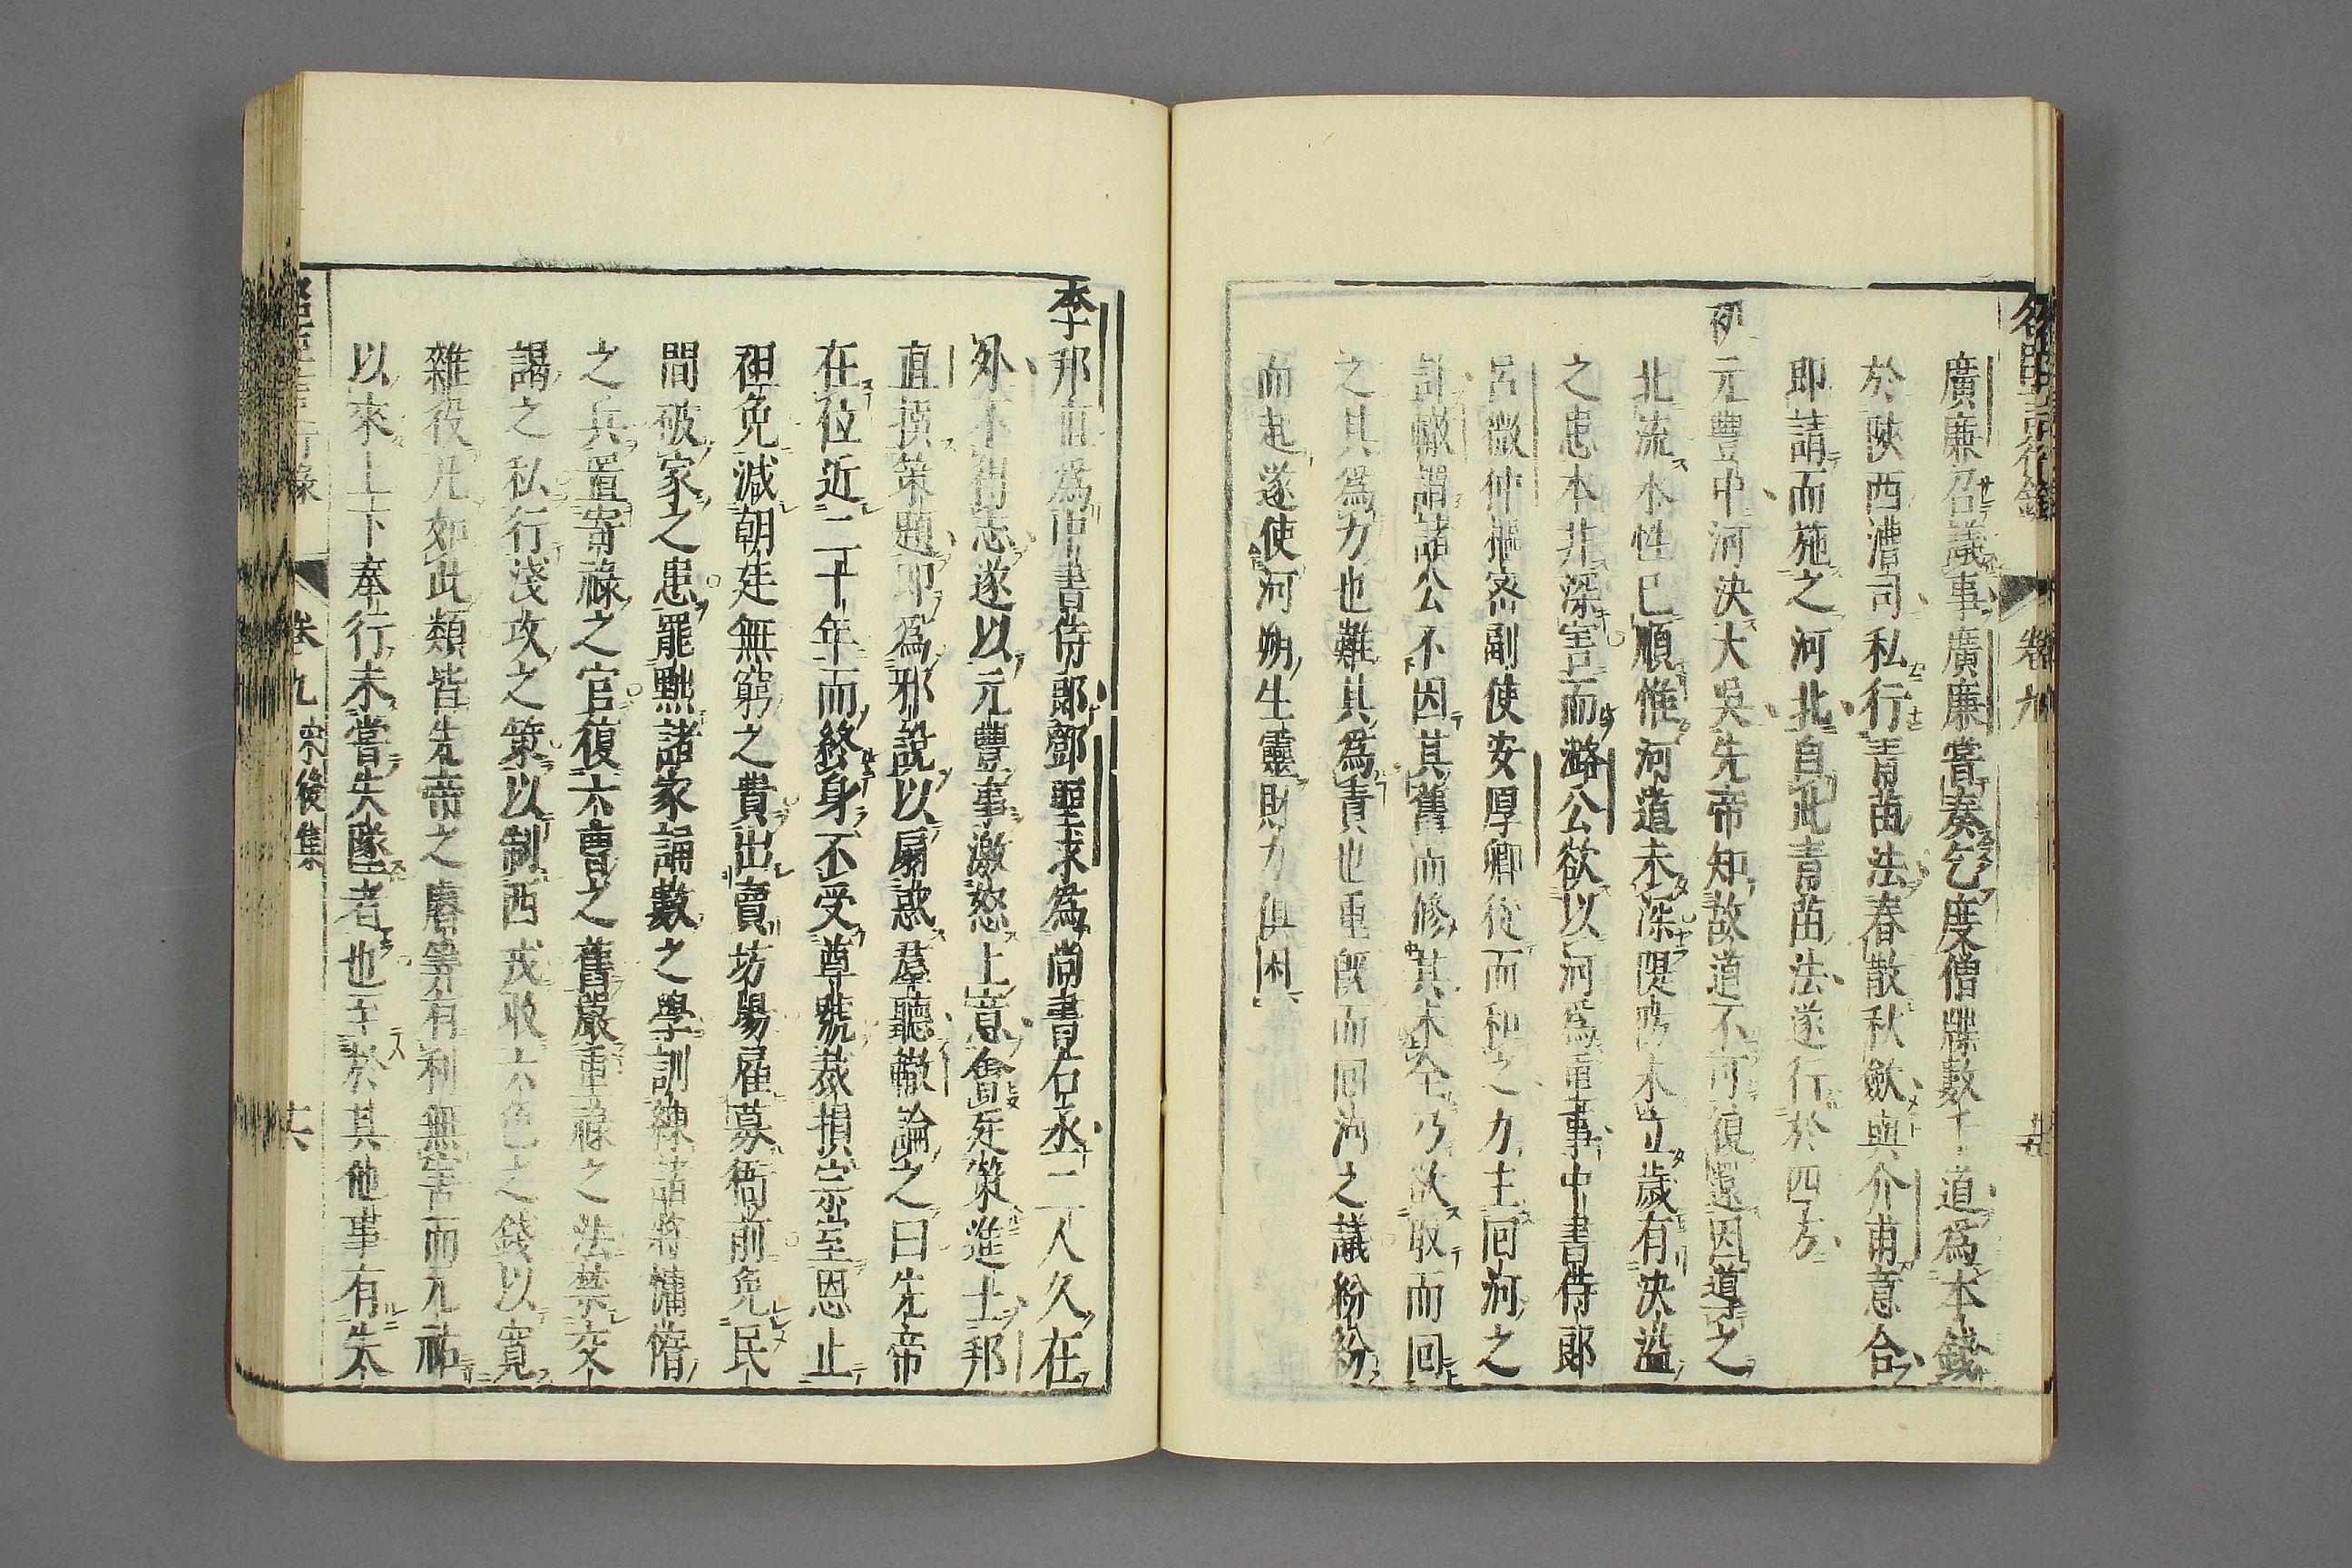 廣廉召議事廣廉嘗奏乞度僧牒數千道爲本錢
於陝西漕司私行青苗法春散秋斂與介甫意合
即請而施之河北自此青苗法遂行於四方
初元豐中河決大吳先帝知故道不可復還因導之
北流水性已順惟河道未深隄防未立歲有決溢
之患本非深害而潞公欲以河爲重事中書侍郎
呂微仲樞密副使安厚卿從而和之力主回河之
計轍謂諸公不因其舊而修其未全乃欲取而回
之其爲力也難其爲責也重旣而回河之議紛紛
而起遂使河朔生靈財力俱困
卷九
李邦直爲中書侍郎鄧聖求爲尚書右丞二人久在
外不得志遂以元豐事激怒上意會廷策進士邦
直撰策題即爲邪說以扇惑羣聽轍論之曰先帝
在位近二十年而終身不受尊號裁損宗室恩止
袒免減朝廷無窮之費出賣坊場雇募衙前免民
間破家之患罷黜諸家誦數之學訓練諸將慵惰
之兵置寄祿之官復六曹之舊嚴重祿之法禁交
謁之私行淺攻之策以制西戎取六色之錢以寬
雜役凡如此類皆先帝之睿筭有利無害而元祐
以來上下奉行未嘗失墜者也至於其他事有失
卷九 宋後集 共